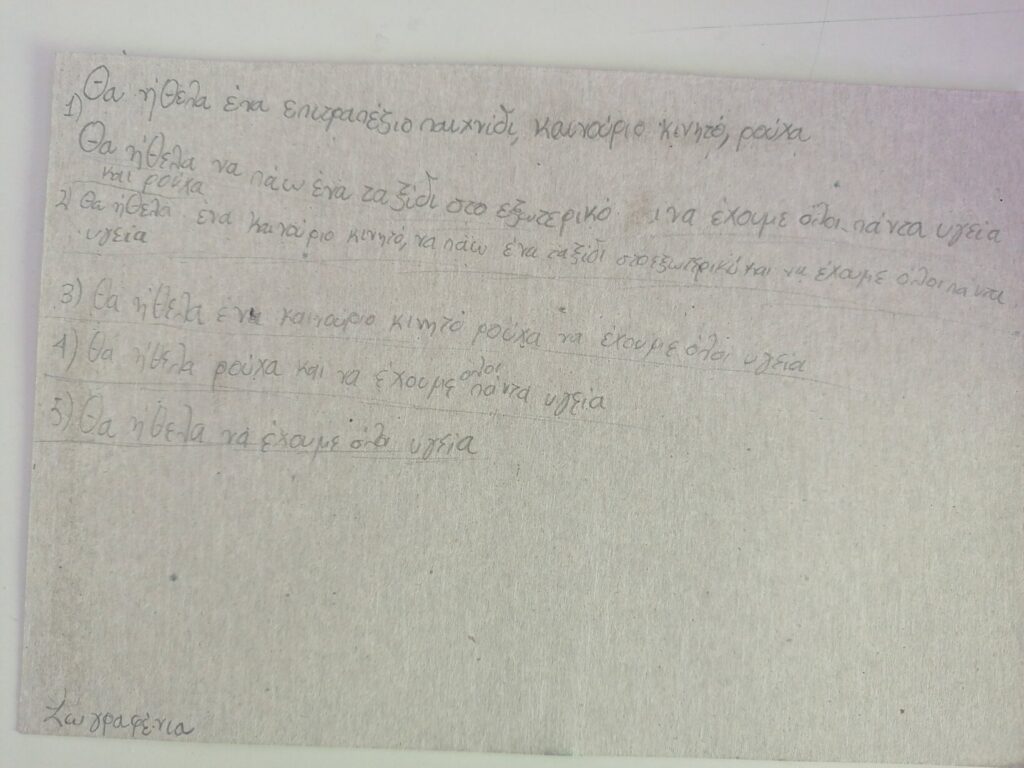 1) Θα ήθελα ένα επιτραπέξιο παιχνίδι, καινούριο κινητό, ρούχα
Θα ήθελα να πάω ένα ταξίδι στο εξωτερικό να έχουμε όλοι πάντα υγεία
και ρούχα
2) Θα ήθελα ένα καινούριο κινητό, να πάω ένα ταξίδι στο εξωτερικό και να έχουμε όλοι πάντα
υγεία
3) Θα ήθελα ένα καινούριο κινητό ρούχα να έχουμε όλοι υγεία
4) Θα ήθελα ρούχα και να έχουμε όλοι πάντα υγεία
5) Θα ήθελα να έχουμε όλοι υγεία
Ζωγραφένια